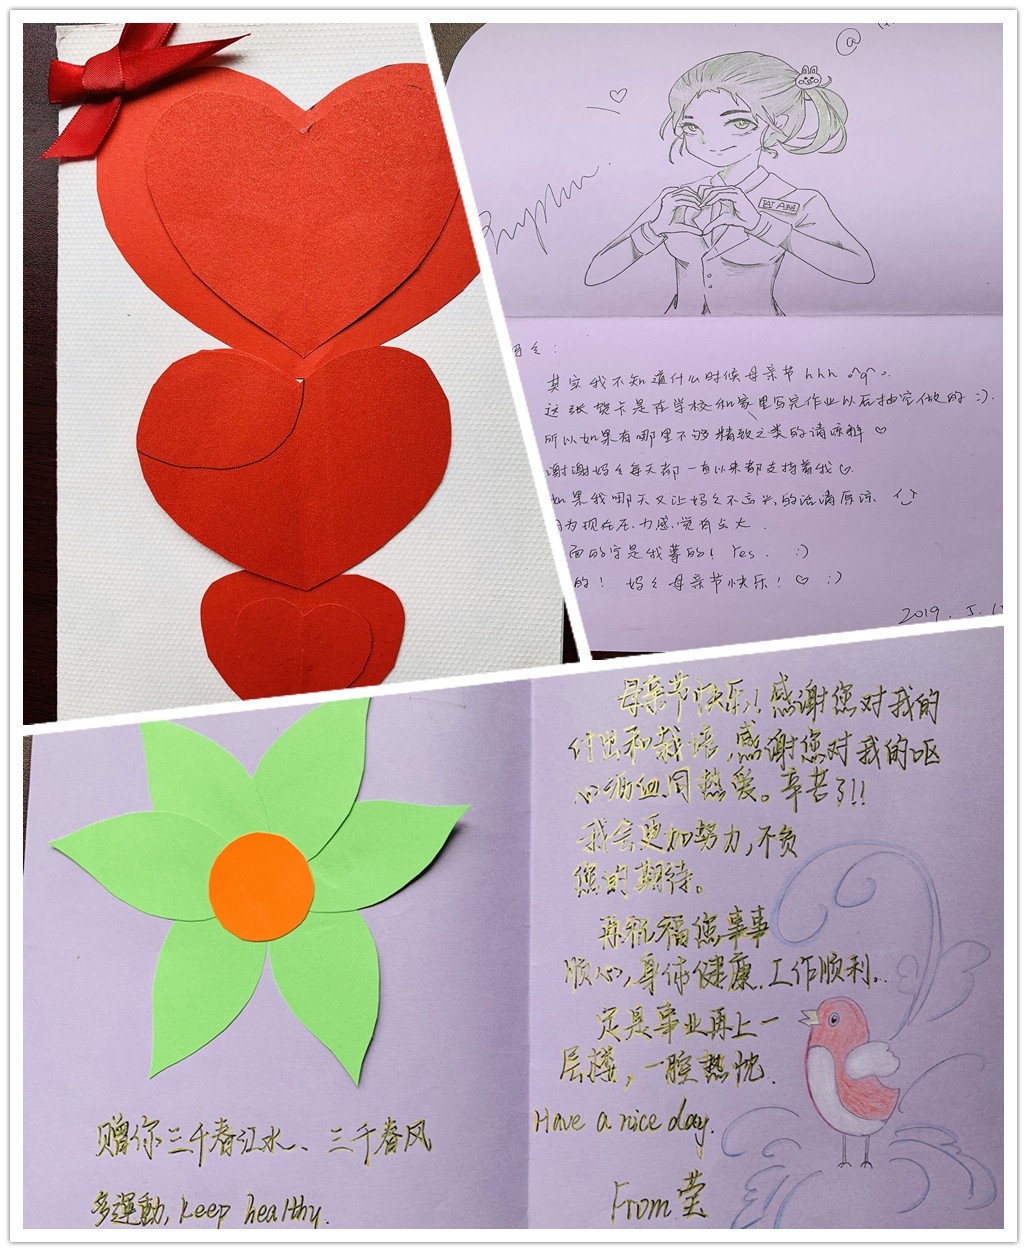 @
妈么:
其实我不知道什么时候母亲节hhh ๑^q^๐.
这张贺卡是在学校和家里写完作业以后抽空做的 :).
所以如果有哪里不够精致之类的请谅解 ♡
谢谢妈么每天都一直以来都支持着我♡.
如果我哪天又让妈么不高兴的话请原谅.
因为现在压力感觉有点大.
面的字是我摹的! Yes. :)
的! 妈么母亲节快乐! ♡ :)
2019. 5. 1
母亲节快乐!!感谢您对我的
付出和栽培,感谢您对我的呕
心沥血同热爱。辛苦了!!
我会更加努力,不负
您的期待。
再祝福您事事
顺心,身体健康.工作顺利..
定是事业再上一
层楼,一腔熱忱.
Have a nice day.
From 莹
赠你三千春江水、三千春风
多運動, keep healthy.